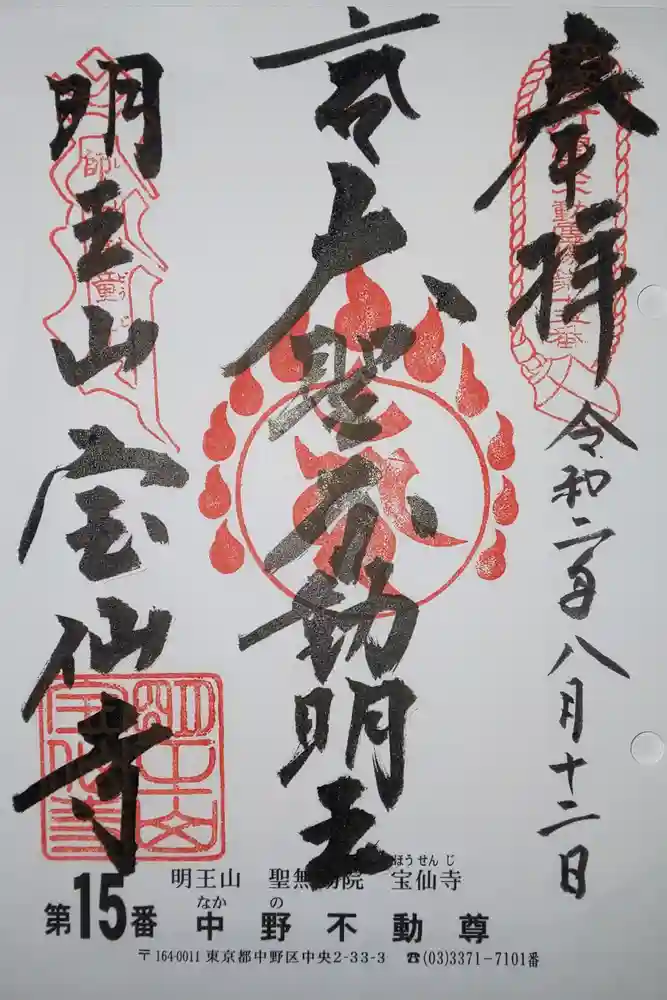 奉拝
令和二年八月十二日
大聖不動明王
明王山
宝仙寺
ほうせんじ
明王山 聖無動院 宝仙寺
なかの
第15番 中野不動尊
〒164-0011 東京都中野区中央2-33-3 ☎(03)3371-7101番